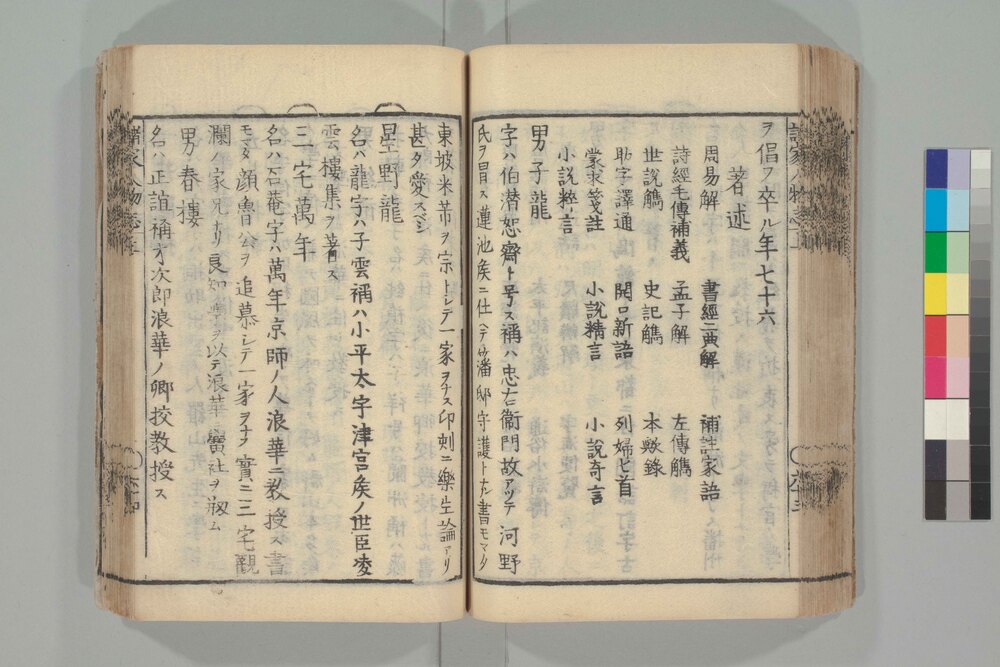 ヲ倡フ卒ル年七十六
著述
周易解 書經二典解 補註家語
詩經毛傳補義 孟子解 左傳觿
世說觿 史記觿 本欬錄
助字譯通 開口新語 列婦匕首
蒙求箋註 小說精言 小說奇言
小說粹言
男子龍
字ハ伯潜恕齋ト号ス稱ハ忠右衞門故アツテ河野
氏ヲ冒ス蓮池矦ニ仕ヘテ藩邸守護トナル書モマタ
東坡米芾ヲ宗トシテ一家ヲナス印刻ニ樂生論アリ
甚タ愛スベシ
星野龍
名ハ龍字ハ子雲稱ハ小平太宇津宮矦ノ世臣凌
雲樓集ヲ著ス
三宅萬年
名ハ石菴字ハ萬年京師ノ人浪華ニ教授ス書
モマタ顔魯公ヲ追慕シテ一家ヲナス實ニ三宅觀
瀾ノ家兄ナリ良知學ヲ以テ浪華實社ヲ剏ム
男春樓
名ハ正誼稱才次郎浪華ノ鄉挍教授ス